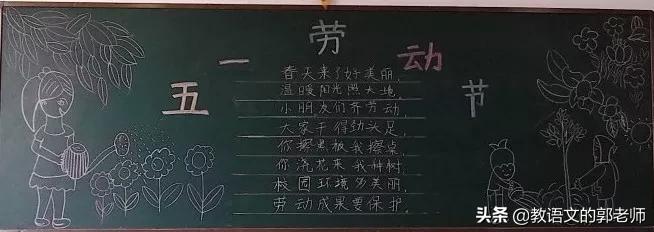 五一劳动节
春天来了好美丽,
温暖阳光照大地,
小朋友们齐劳动,
大家干得劲头足,
你擦黑板我擦桌,
你浇花来我种树,
校园环境多美丽,
劳动成果要保护。
头条 @教语文的郭老师